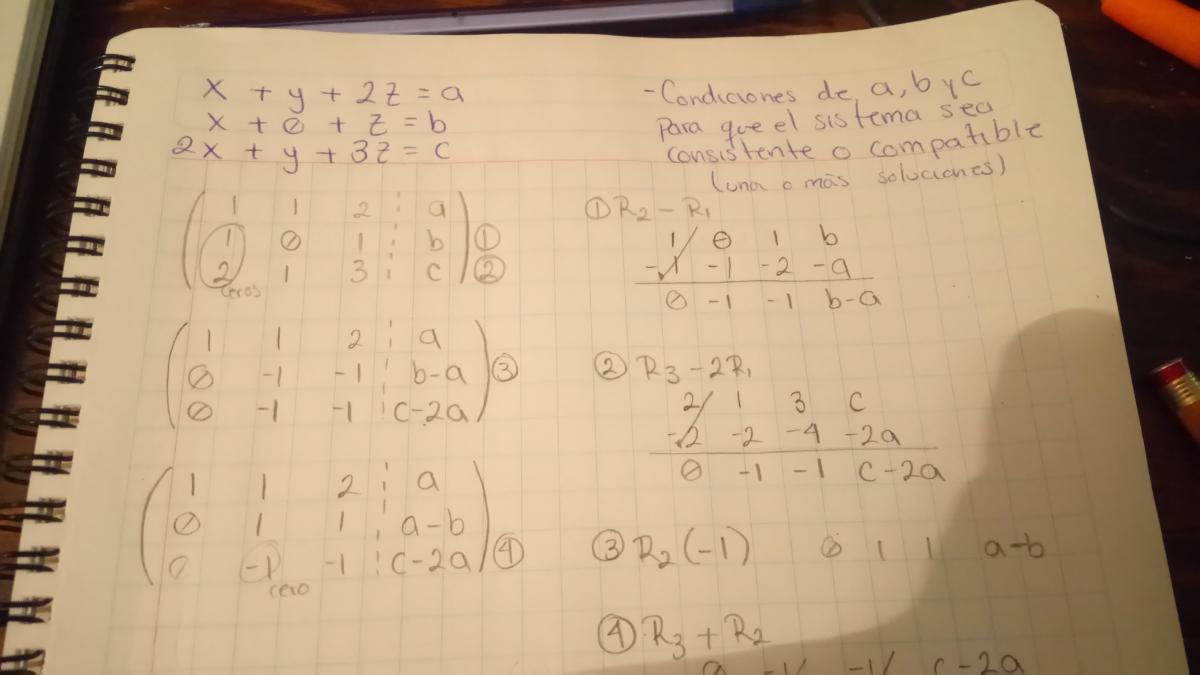 x + y + 2z = a
x + 0 + z = b
2x + y + 3z = c
- Condiciones de a, b y c
Para que el sistema sea
consistente o compatible
(una o más soluciones)
1 1 2 | a
1 0 1 | b ①
2 1 3 | c ②
ceros
① R2 - R1
1 0 1 b
-1 -1 -2 -a
0 -1 -1 b-a
1 1 2 | a
0 -1 -1 | b-a ③
0 -1 -1 | c-2a
② R3 - 2R1
2 1 3 c
-2 -2 -4 -2a
0 -1 -1 c-2a
1 1 2 | a
0 1 1 | a-b
0 -1 -1 | c-2a ④
cero
③ R2 (-1) 0 1 1 a-b
④ R3 + R2
0 -1 -1 c-2a